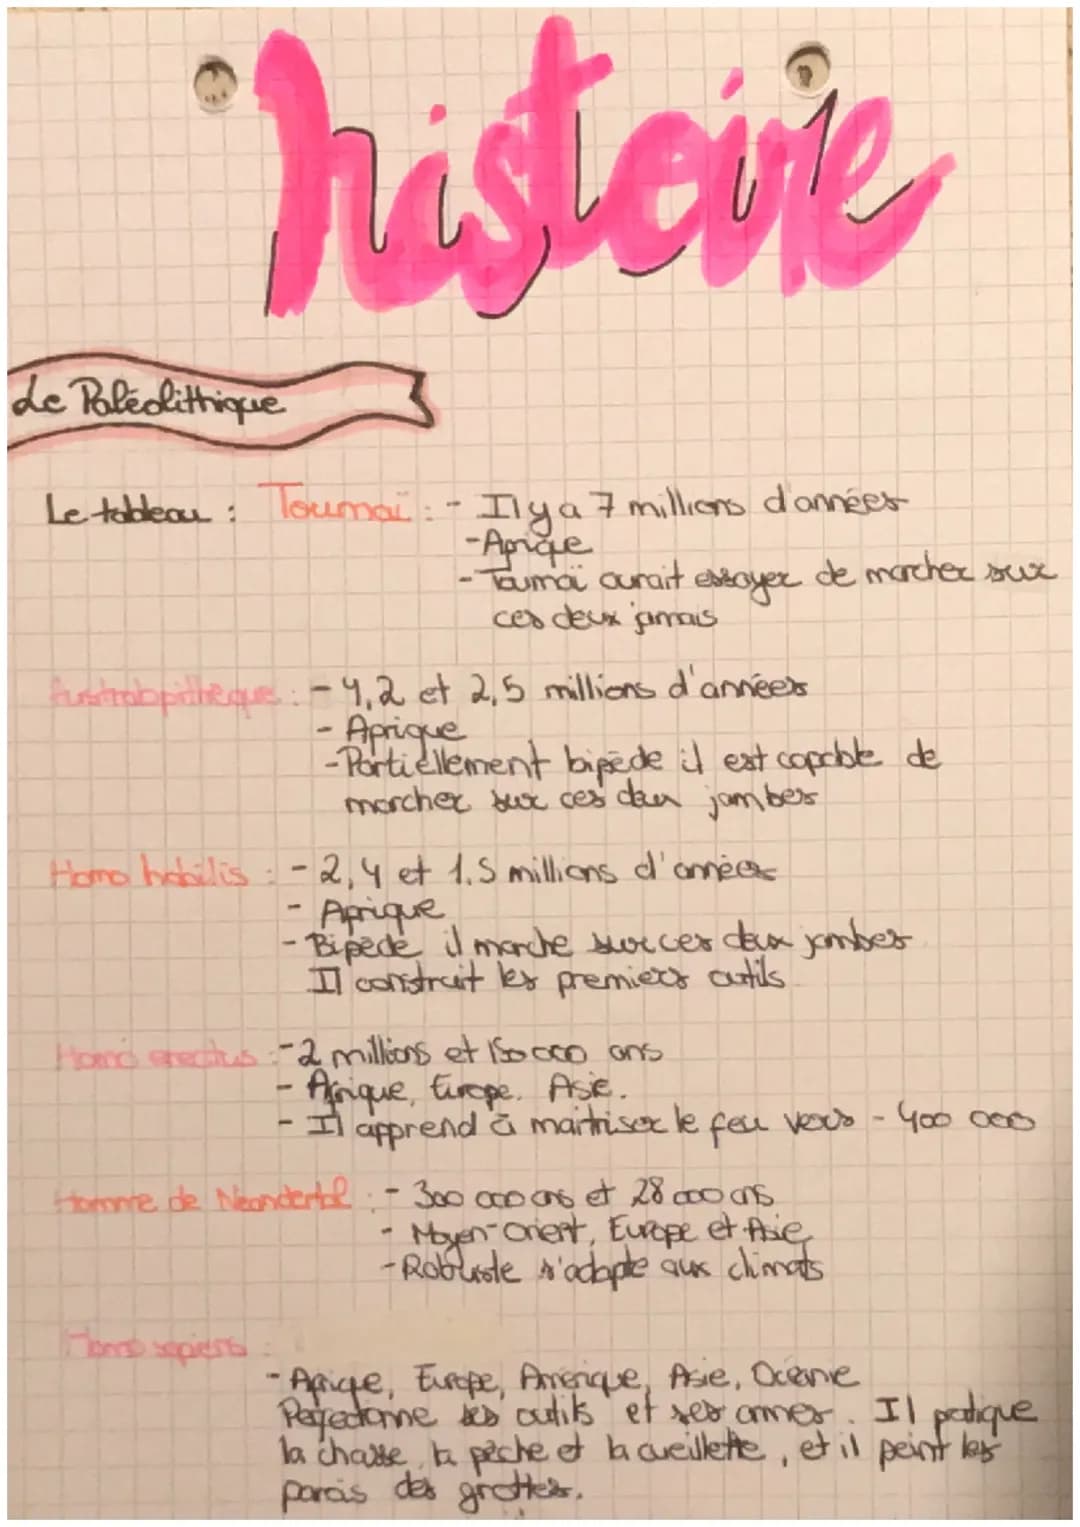 histoire
Le Paléolitthique
Le tableau : Toumaï : - Il y a 7 millions d'années
- Afrique
- Toumaï aurait essayer de marcher sur
ces deux jamais
Australopithèque : - 4,2 et 2,5 millions d'années
- Afrique
- Partiellement bipède il est capable de
marcher sur ces deux jambes
Homo habilis : - 2,4 et 1.5 millions d'années
- Afrique
- Bipède il marche sur ces deux jambes
Il construit les premiers outils
Homo erectus : - 2 millions et 150 000 ans
- Afrique, Europe. Asie.
- Il apprend à maitriser le feu vers - 400 000
Homme de Neandertal : - 300 000 ans et 28 000 ans
- Moyen-Orient, Europe et Asie
- Robuste s'adapte aux climats
Homo sapiens :
- Afrique, Europe, Amérique, Asie, Océanie
Perfectionne ses outils et ses armes. Il pratique
la chasse, la pêche et la cueillette, et il peint les
parois des grottes.